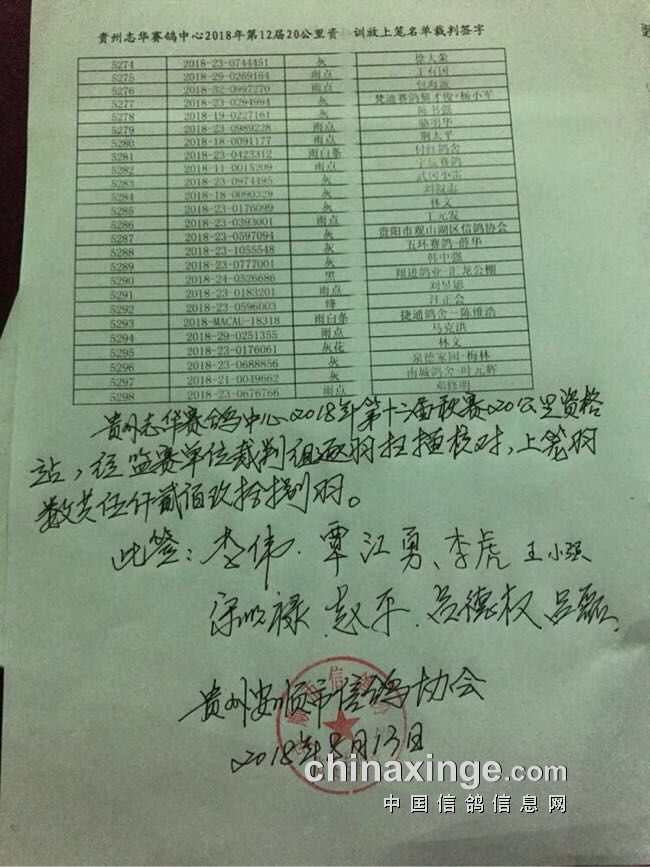 贵州志华赛鸽中心2018年第12届20公里资 训放上笼名单裁判签字
5274 2018-23-0744451 灰 徐大荣
5275 2018-29-0269164 雨点 丁有国
5276 2018-32-0997270 雨点 包海波
5277 2018-23-0294994 灰 梵迪赛鸽黎才俊+杨小军
5278 2018-19-0227161 灰 陈书强
5279 2018-23-0989228 雨点 骆明华
5280 2018-18-0091177 雨点 荆太平
5281 2018-23-0423312 雨白条 付红鸽舍
5282 2018-11-0015209 雨点 宇辰赛鸽
5283 2018-23-0974495 灰 武国小雷
5284 2018-18-0090329 灰 刘叙志
5285 2018-23-0176099 灰 林文
5286 2018-23-0393001 雨点 王元发
5287 2018-23-0597094 灰 贵阳市观山湖区信鸽协会
5288 2018-23-1055548 灰 五环赛鸽-薛华
5289 2018-23-0777001 灰 韩中强
5290 2018-24-0526686 黑 翔进鸽业-汇龙公棚
5291 2018-23-0183201 雨点 刘昱彤
5292 2018-23-0596003 绛 汪正会
5293 2018-MACAU-18318 雨白条 捷通鸽舍-陈维浩
5294 2018-29-0251355 雨点 马克洪
5295 2018-23-0176061 灰花 林文
5296 2018-23-0688856 灰 泉德家园-梅林
5297 2018-21-0049662 灰 南城鸽舍-叶元辉
5298 2018-23-0676766 雨点 邓修明
贵州志华赛鸽中心2018年第十二届秋赛20公里资格
站，经监赛单位裁判组逐羽扫描核对，上笼羽
数共伍仟贰佰玖拾捌羽。
此签：李伟、覃江勇、李虎 王小强
梁明禄、赵平、吕德权 吕磊
贵州安顺市信鸽协会
2018年8月13日
chinaxinge.com
中国信鸽信息网